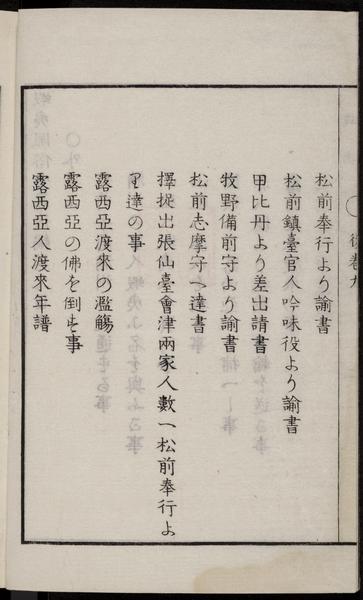 松前奉行より諭書
松前鎮臺官人吟味役より諭書
甲比丹より差出請書
牧野備前守より諭書
松前志摩守へ達書
擇捉出張仙臺會津兩家人數へ松前奉行よ
り達の事
露西亞渡來の濫觴
露西亞の佛を倒す事
露西亞人渡來年譜